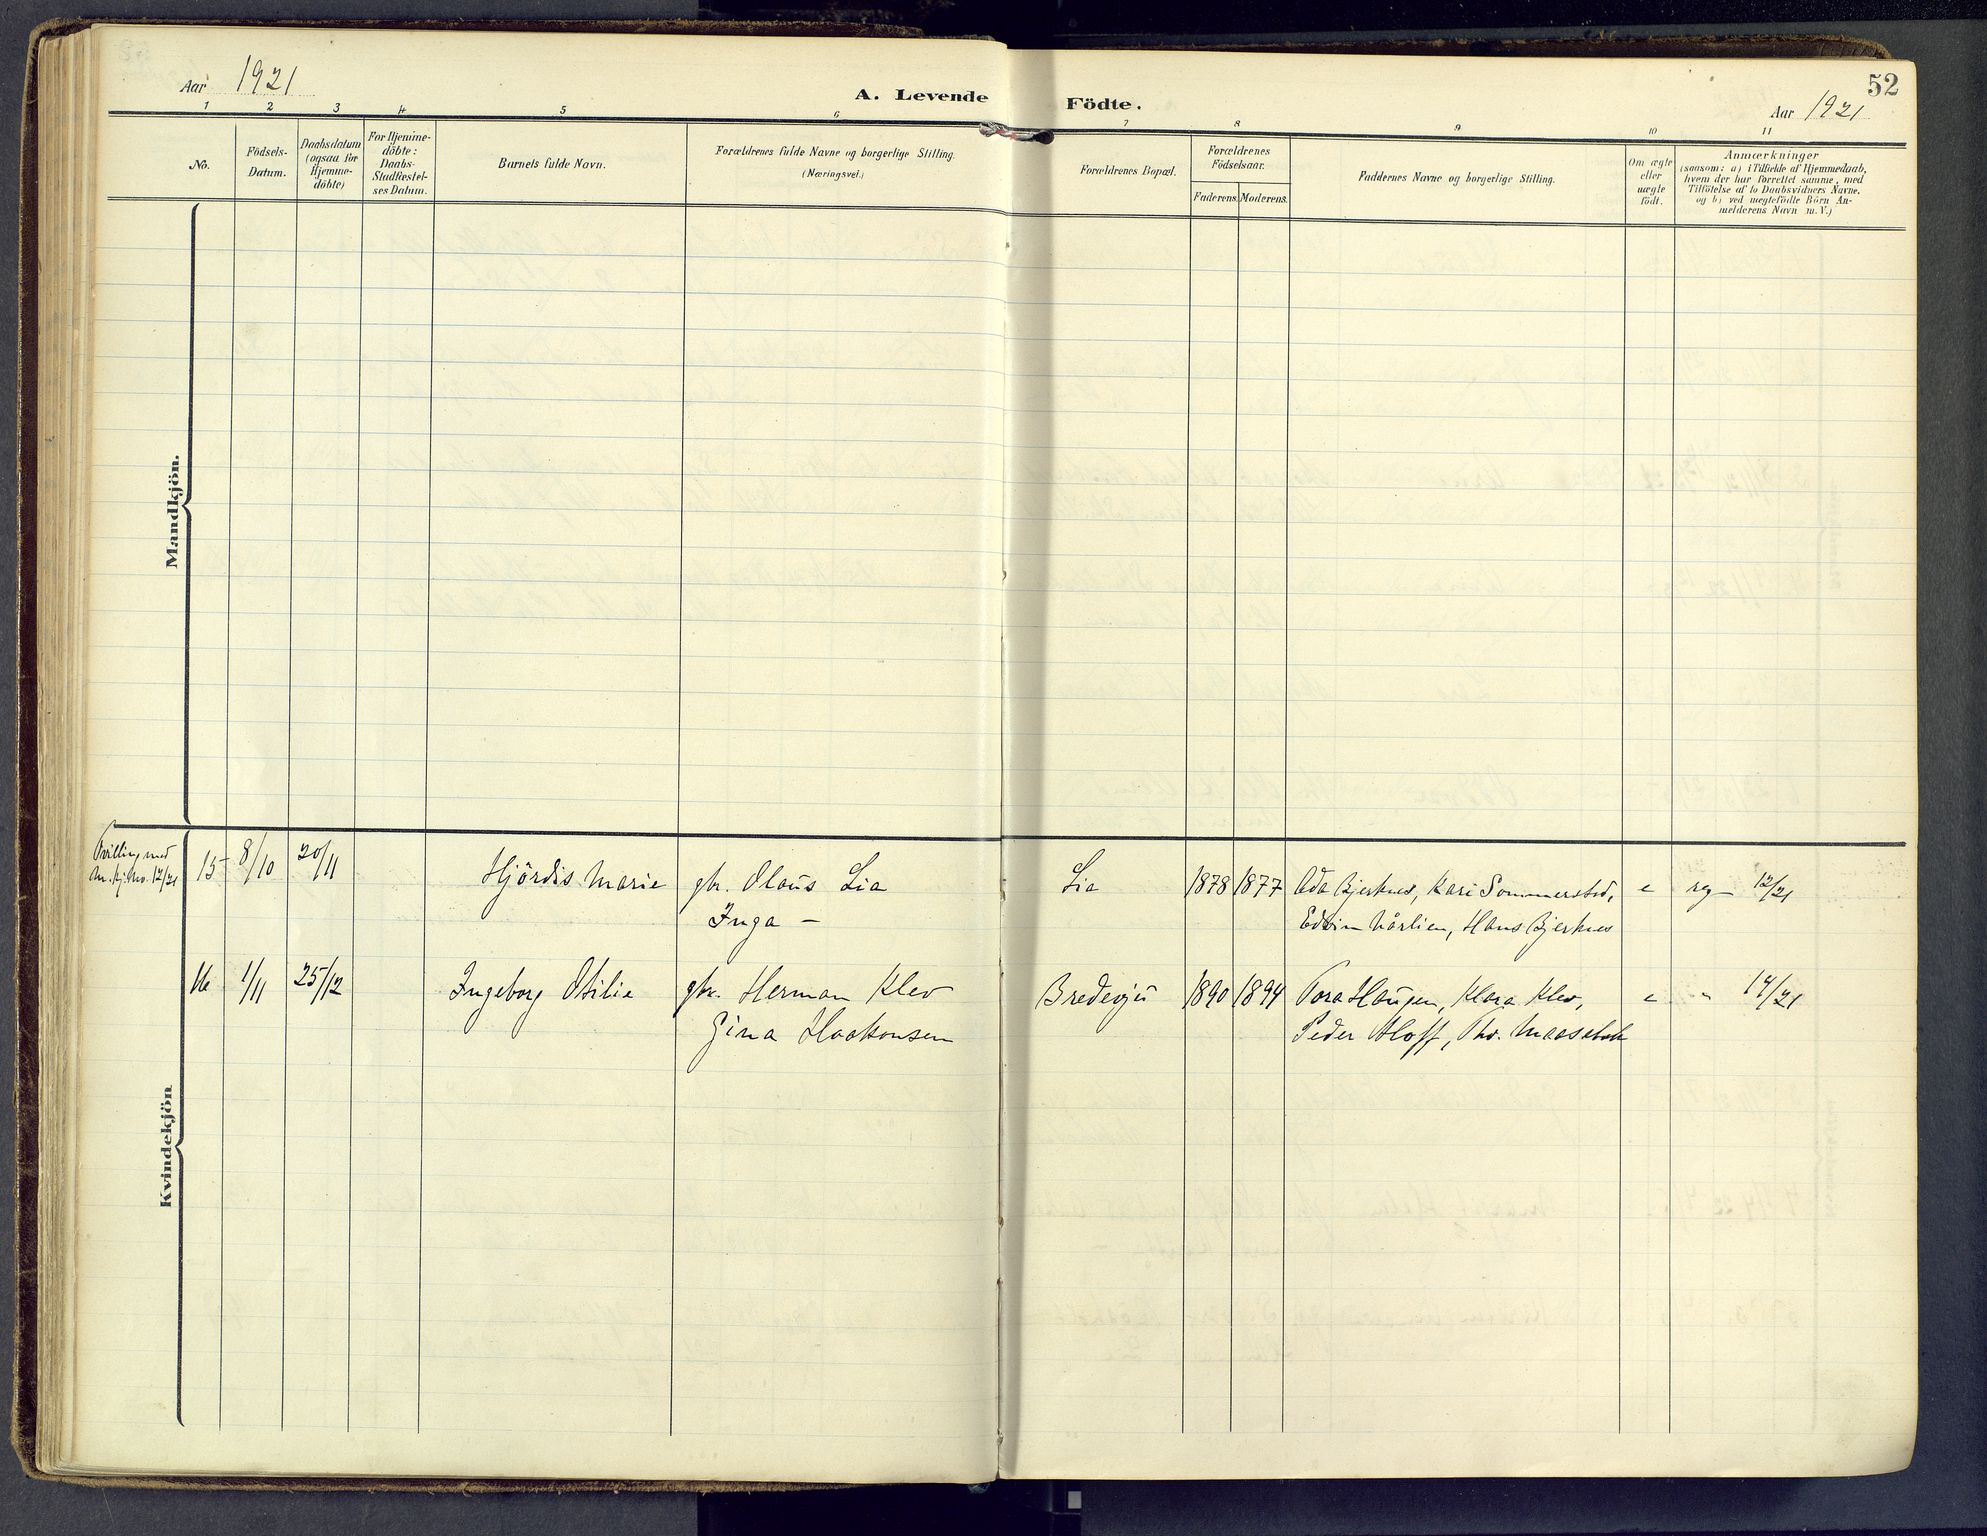 52
Aar 1921
A. Levende Födte.
Aar 1921
1 2 3 4 5 6 7 8 9 10 11
No.
Födsels-
Datum.
Daabsdatum
(ogsaa for
Hjemme-
döbte)
For Hjemme-
döbte:
Daabs-
Stadfæstel-
ses Datum.
Barnets fulde Navn.
Forældrenes fulde Navne og borgerlige Stilling.
(Næringsvei.)
Forældrenes Bopæl.
Forældrenes
Födselsaar.
Faderens. Moderens.
Faddernes Navne og borgerlige Stilling.
Om ægte
eller
uægte
födt.
Anmærkninger
(saasom: a) i Tilfælde af Hjemmedaab,
hvem der har forrettet samme, med
Tilföielse af to Daabsvidners Navne,
og b) ved uægtefödte Börn An-
melderens Navn m. V.)
Mandkjön.
Kvindekjön
Tvilling med
M.kj. No. 12/21
15 8/10 20/11 Hjördis Marie gbr. Olaus Lia Lia 1878 1877 Ada Bjerknes, Kari Sommerstad, e reg 12/21
Inga – Edvin Nårlien, Hans Bjerknes
16 1/11 25/12 Ingeborg Otilie gbr. Herman Klev Bredevju 1890 1894 Tora Haugen, Klara Klev, e " 14/21
Gina Haakonsen Peder Hoff, Thv.